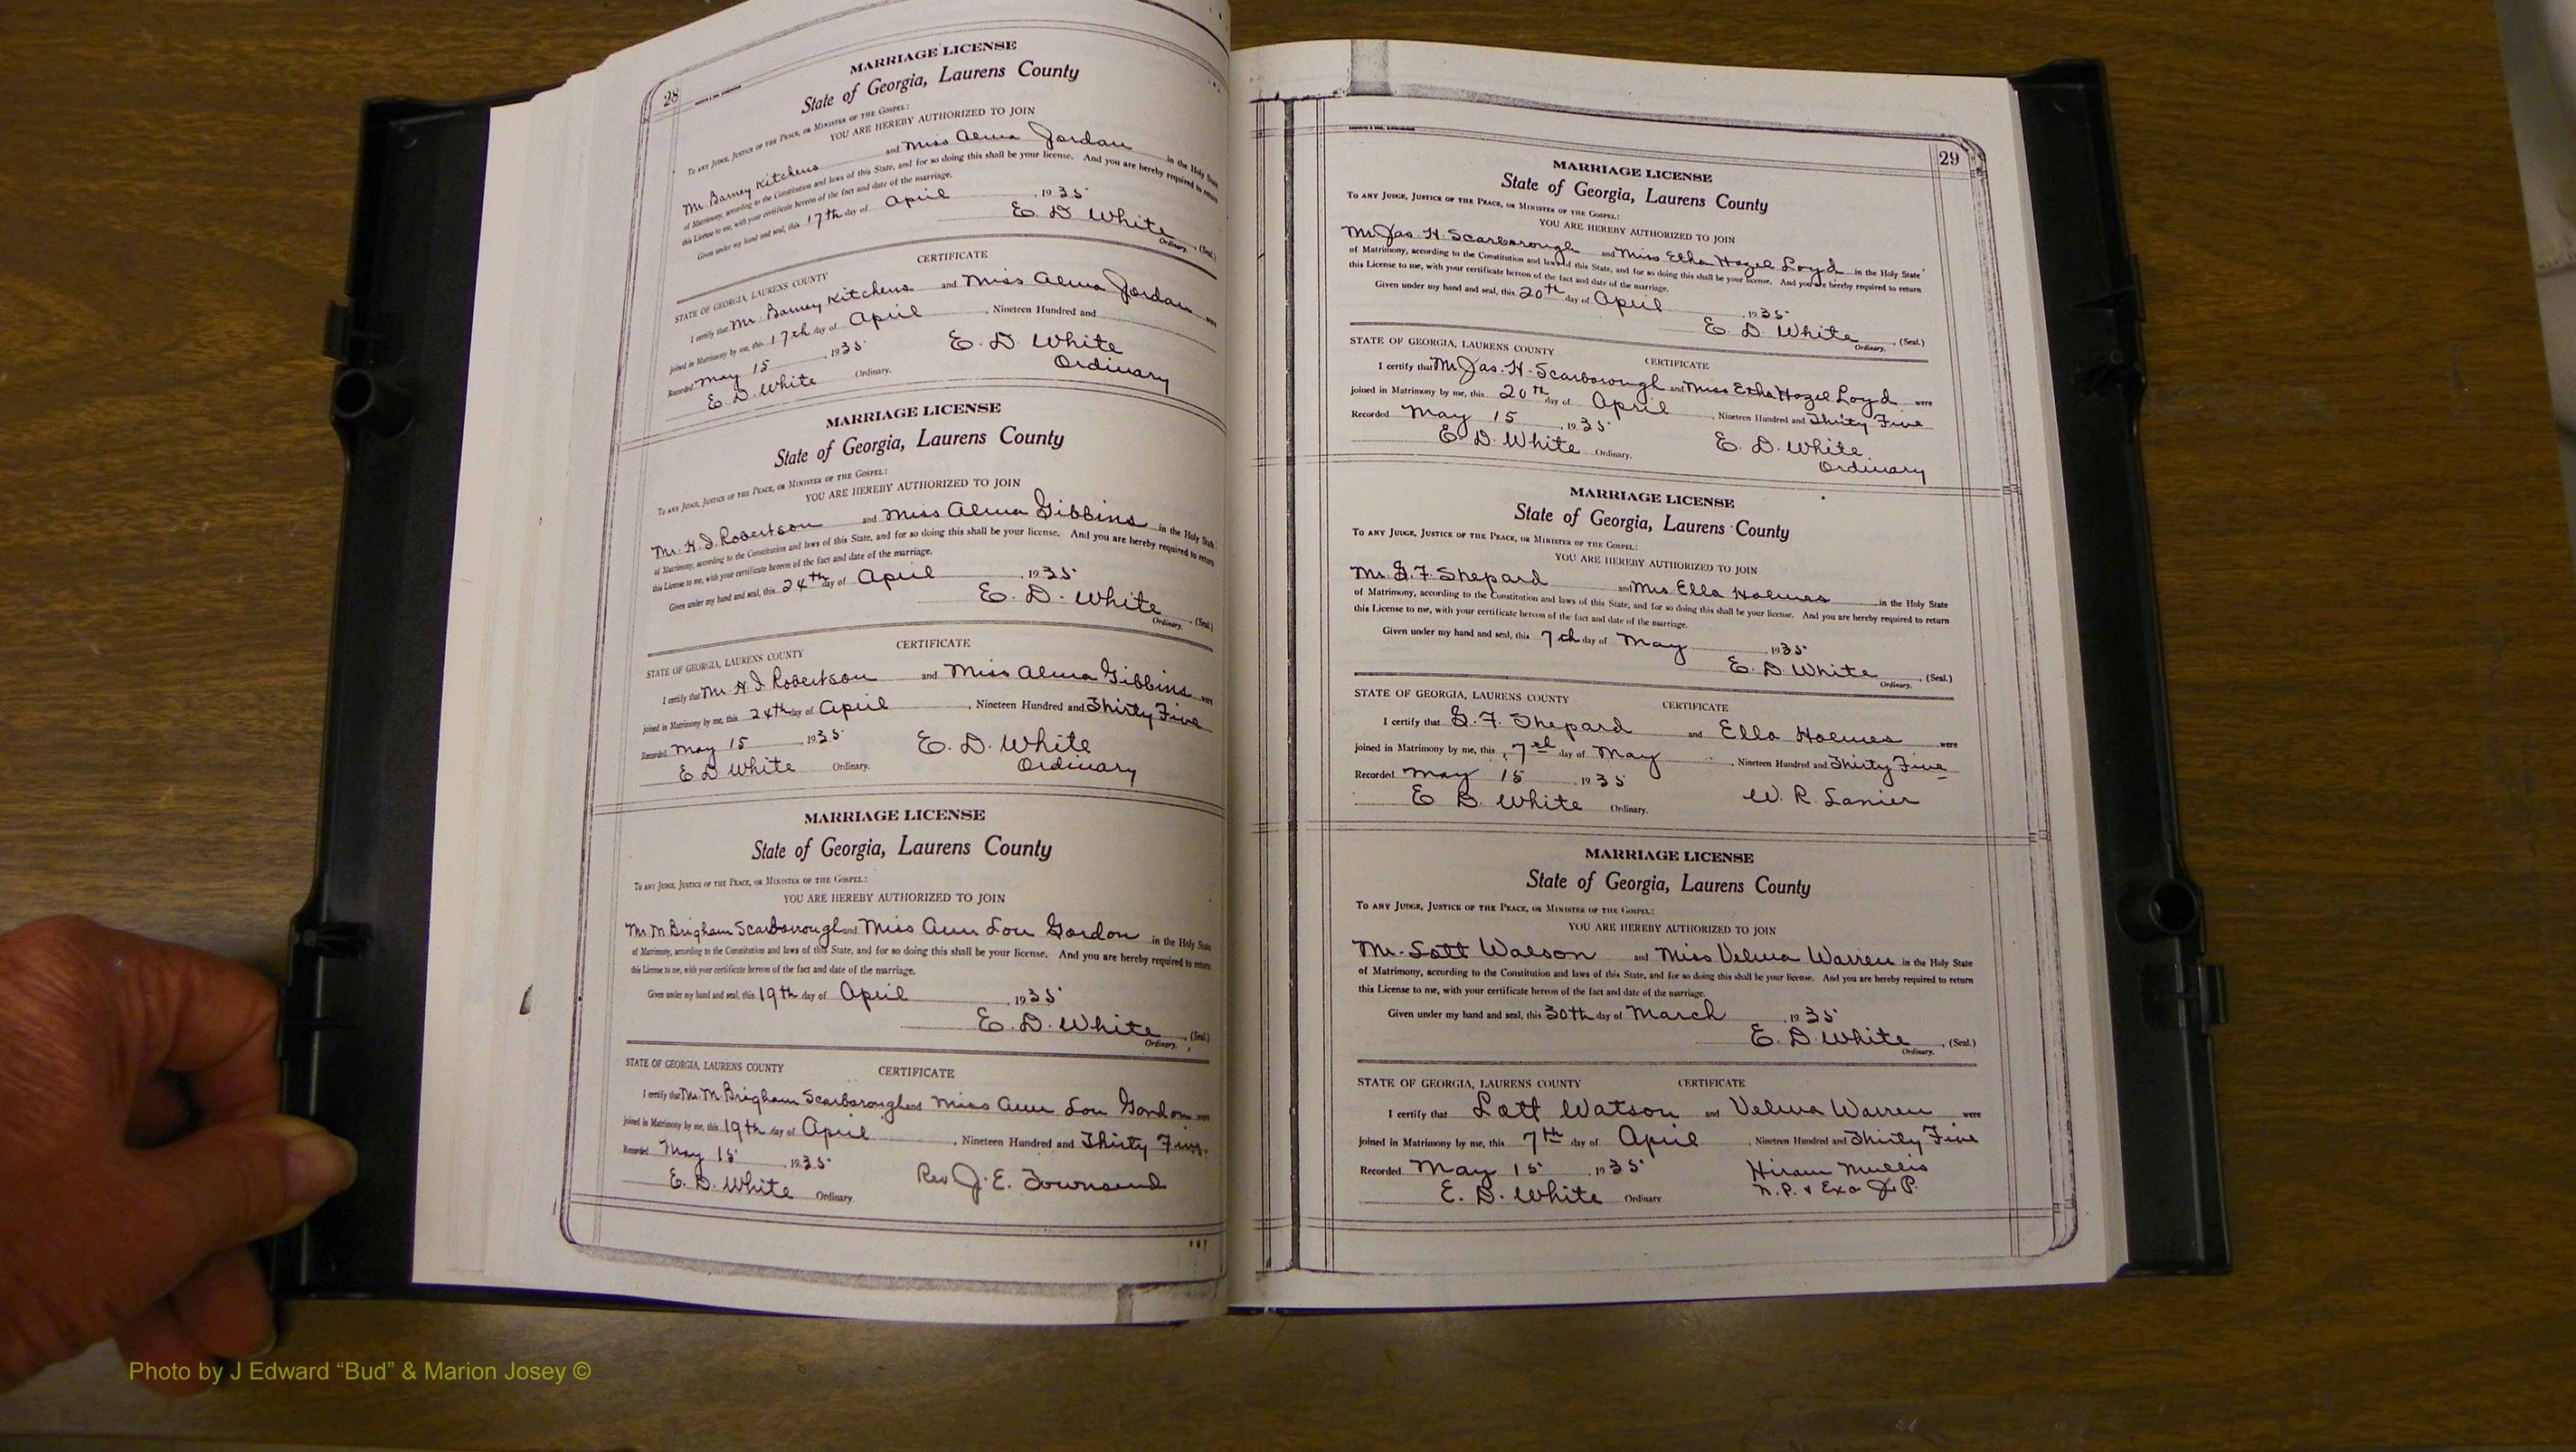 28
MARRIAGE LICENSE
State of Georgia, Laurens County
To any Judge, Justice of the Peace, or Minister of the Gospel:
YOU ARE HEREBY AUTHORIZED TO JOIN
Mr. Barney Kitchens and Miss Alma Jordan in the Holy State
of Matrimony, according to the Constitution and laws of this State, and for so doing this shall be your license. And you are hereby required to return
this License to me, with your certificate hereon of the fact and date of the marriage.
Given under my hand and seal, this 17th day of April, 1935
E. D. White, (Seal.)
Ordinary.
CERTIFICATE
STATE OF GEORGIA, LAURENS COUNTY
I certify that Mr. Barney Kitchens and Miss Alma Jordan were
joined in Matrimony by me, this 17th day of April, Nineteen Hundred and
Recorded May 15, 1935
E. D. White Ordinary.
E. D. White
Ordinary
MARRIAGE LICENSE
State of Georgia, Laurens County
To any Judge, Justice of the Peace, or Minister of the Gospel:
YOU ARE HEREBY AUTHORIZED TO JOIN
Mr. H. I. Robertson and Miss Alma Gibbins in the Holy State
of Matrimony, according to the Constitution and laws of this State, and for so doing this shall be your license. And you are hereby required to return
this License to me, with your certificate hereon of the fact and date of the marriage.
Given under my hand and seal, this 24th day of April, 1935
E. D. White, (Seal.)
Ordinary.
CERTIFICATE
STATE OF GEORGIA, LAURENS COUNTY
I certify that Mr. H. I. Robertson and Miss Alma Gibbins were
joined in Matrimony by me, this 24th day of April, Nineteen Hundred and Thirty Five
Recorded May 15, 1935
E D White Ordinary.
E. D. White
Ordinary
MARRIAGE LICENSE
State of Georgia, Laurens County
To any Judge, Justice of the Peace, or Minister of the Gospel:
YOU ARE HEREBY AUTHORIZED TO JOIN
Mr. M. Brigham Scarborough and Miss Ann Lou Gordon in the Holy State
of Matrimony, according to the Constitution and laws of this State, and for so doing this shall be your license. And you are hereby required to return
this License to me, with your certificate hereon of the fact and date of the marriage.
Given under my hand and seal, this 19th day of April, 1935
E. D. White, (Seal.)
Ordinary.
STATE OF GEORGIA, LAURENS COUNTY CERTIFICATE
I certify that Mr. M. Brigham Scarborough and Miss Ann Lou Gordon were
joined in Matrimony by me, this 19th day of April, Nineteen Hundred and Thirty Five
Recorded May 15, 1935
E. D. White Ordinary.
Rev J. E. Townsend
29
MARRIAGE LICENSE
State of Georgia, Laurens County
To any Judge, Justice of the Peace, or Minister of the Gospel:
YOU ARE HEREBY AUTHORIZED TO JOIN
Mr. Jas. H. Scarborough and Miss Etha Hazel Loyd in the Holy State
of Matrimony, according to the Constitution and laws of this State, and for so doing this shall be your license. And you are hereby required to return
this License to me, with your certificate hereon of the fact and date of the marriage.
Given under my hand and seal, this 20th day of April, 1935
E. D. White, (Seal.)
Ordinary.
STATE OF GEORGIA, LAURENS COUNTY CERTIFICATE
I certify that Mr. Jas. H. Scarborough and Miss Etha Hazel Loyd were
joined in Matrimony by me, this 20th day of April, Nineteen Hundred and Thirty Five
Recorded May 15, 1935
E. D. White Ordinary.
E. D. White
Ordinary
MARRIAGE LICENSE
State of Georgia, Laurens County
To any Judge, Justice of the Peace, or Minister of the Gospel:
YOU ARE HEREBY AUTHORIZED TO JOIN
Mr. G. F. Shepard and Mrs Ella Holmes in the Holy State
of Matrimony, according to the Constitution and laws of this State, and for so doing this shall be your license. And you are hereby required to return
this License to me, with your certificate hereon of the fact and date of the marriage.
Given under my hand and seal, this 7th day of May, 1935
E. D White, (Seal.)
Ordinary.
STATE OF GEORGIA, LAURENS COUNTY CERTIFICATE
I certify that G. F. Shepard and Ella Holmes were
joined in Matrimony by me, this 7th day of May, Nineteen Hundred and Thirty Five
Recorded May 15, 1935
E D. White Ordinary.
W. R. Lanier
MARRIAGE LICENSE
State of Georgia, Laurens County
To any Judge, Justice of the Peace, or Minister of the Gospel:
YOU ARE HEREBY AUTHORIZED TO JOIN
Mr. Lott Watson and Miss Velma Warren in the Holy State
of Matrimony, according to the Constitution and laws of this State, and for so doing this shall be your license. And you are hereby required to return
this License to me, with your certificate hereon of the fact and date of the marriage.
Given under my hand and seal, this 30th day of March, 1935
E. D. White, (Seal.)
Ordinary.
STATE OF GEORGIA, LAURENS COUNTY CERTIFICATE
I certify that Lott Watson and Velma Warren were
joined in Matrimony by me, this 7th day of April, Nineteen Hundred and Thirty Five
Recorded May 15, 1935
E. D. White Ordinary
Hiram Mullis
N. P. & Exo J. P.
Photo by J Edward “Bud” & Marion Josey ©